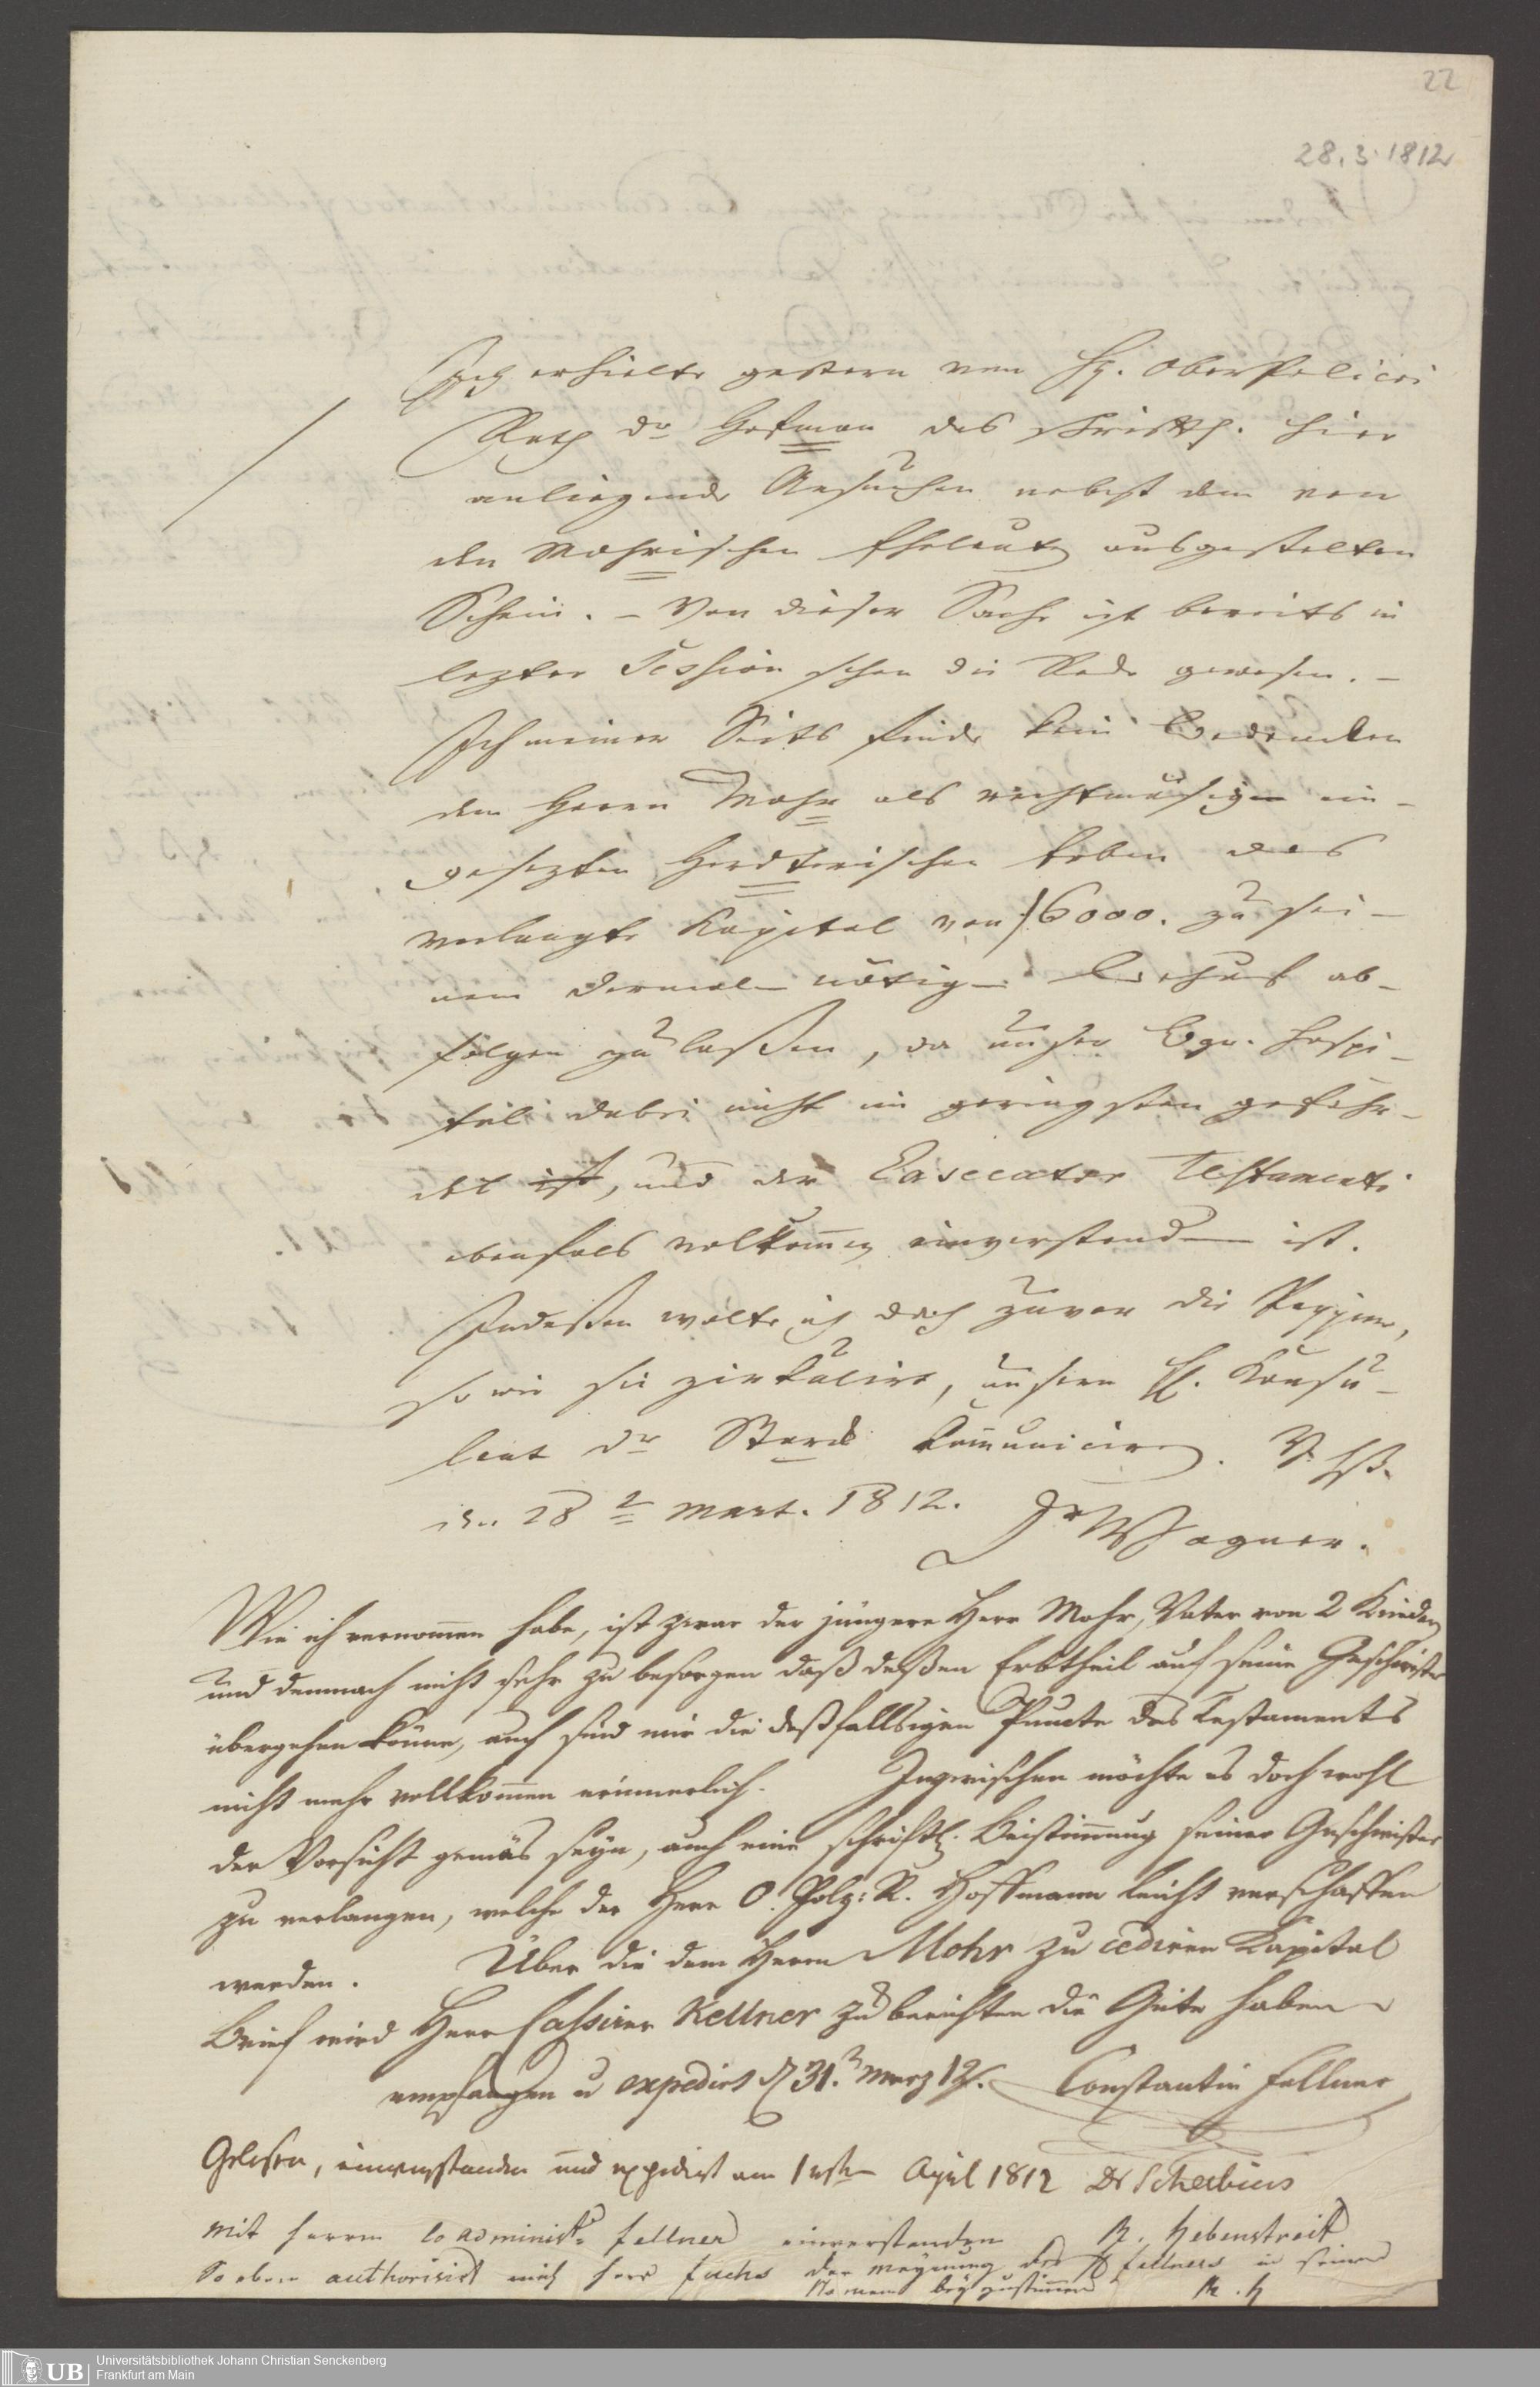 22
28.3.1812
Ich erhielte gestern von H. Oberpolicei
Rath Dr Hofman das schriftl. hier
anliegende Ansuchen nebst dem von
den Mohrischen Eheleuten ausgestelten
Schein. – Von dieser Sache ist bereits in
lezter Session schon die Rede gewesen. –
Ich meiner Seits finde kein Bedencken
dem Herrn Mohr als rechtmäsigen ein-
gesezten Erben das
verlangte Kapital von f 6000. zu sei-
nem dermalen nötigen Behuf ab-
folgen zu laßen, da unser Bgr. Hospi-
tal dabei nicht im geringsten gefähr-
det ist, und der Executor Testamenti
ebenfals volkommen einverstanden ist.
Indeßen wolte ich doch zuvor die Papiere,
so wie sie zirkulirt, unsern H. Konsu-
lent Dr Starck kommuniciren.
den 28 Mart. 1812. Dr Wagner.
Wie ich vernommen habe, ist zwar der jüngere Herr Mohr, Vater von 2 Kindern
und demnach nicht sehr zu besorgen daß deßen Erbtheil auf seine Geschwister
übergehen könne, auch sind mir die deßfallsigen Puncte des Testaments
nicht mehr vollkommen erinnerlich. Inzwischen möchte es doch wohl
der Vorsicht gemäs seyn, auch eine schriftl. Beistimmung seiner Geschwister
zu verlangen, welche der Herr O. Polz: R. Hoffmann leicht verschaffen
werden. Über die dem Herrn Mohr zu cediren Kapital
Brief wird Herr Cassirer Kellner zu berichten die Güte haben
empfangen u expedirt d 31. Merz 12. Constantin Fellner
Gelesen, einverstanden und expedirt am 1sten April 1812 Dr Scherbius
Mit herrn Coadminist. Fellner einverstanden R. Hebenstreit
So eben authorisirt mich herr Fuchs der Meynung des H Fellners in seinem
Namen beyzustimmen R. H
UB
Universitätsbibliothek Johann Christian Senckenberg
Frankfurt am Main